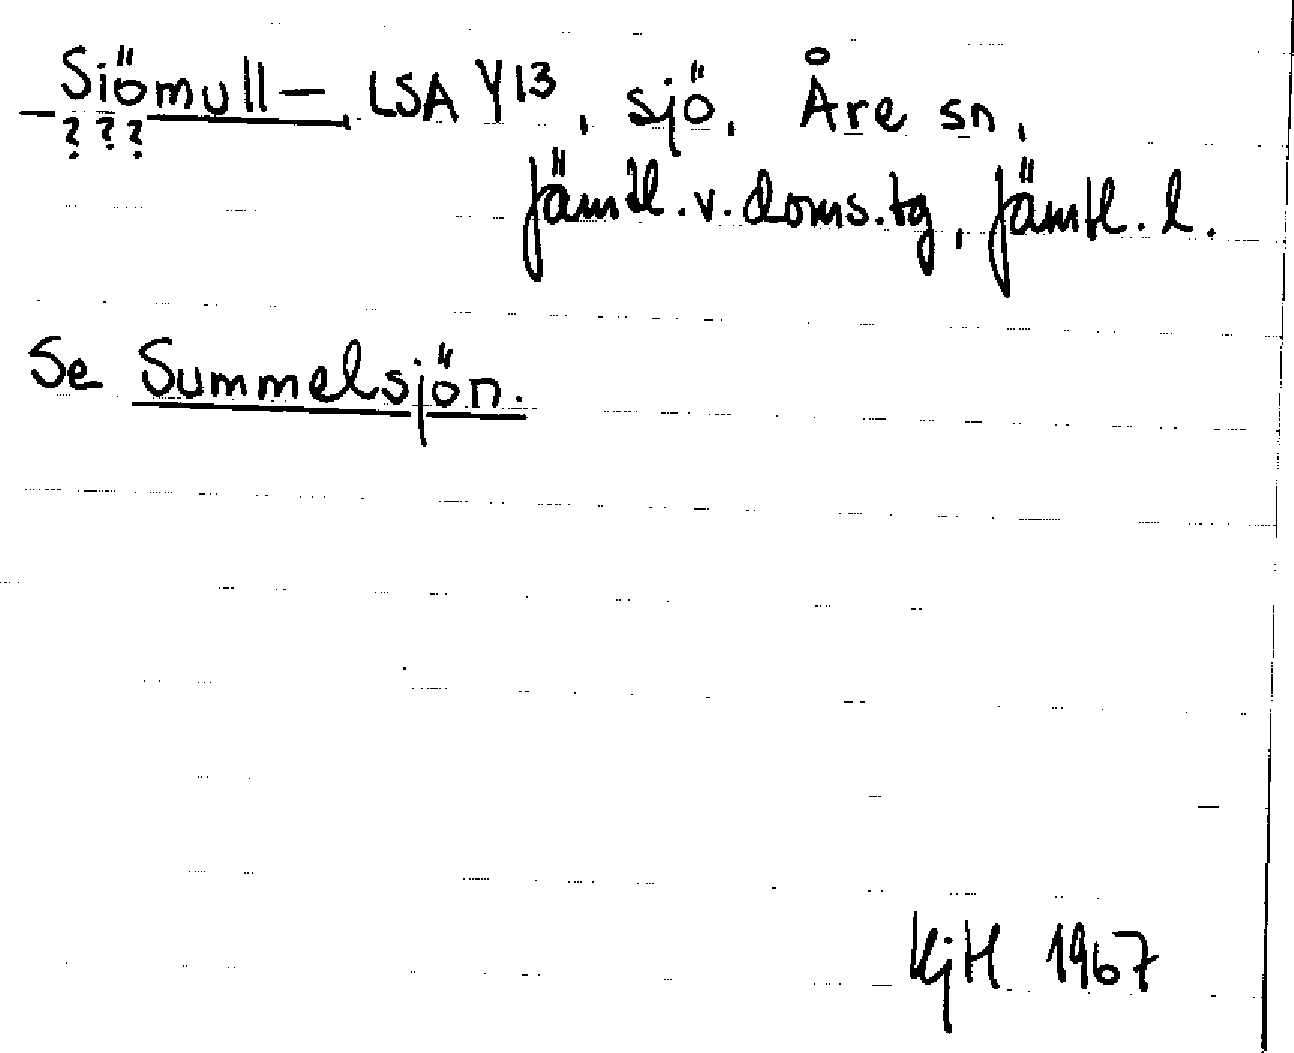 -Siömull- LSA Y13, sjö. Åre sn,
???
Jämtl.v.doms.tg, Jämtl.l.
Se Summelsjön.
KjH 1967